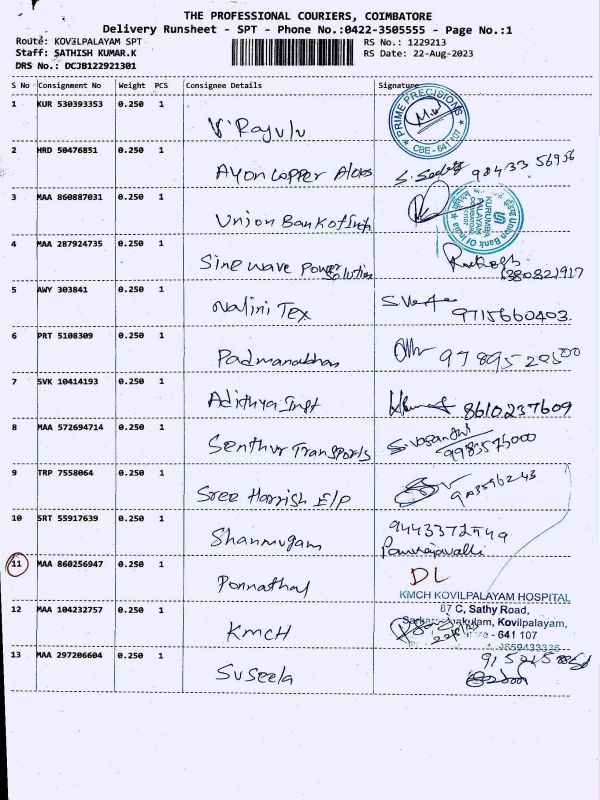 THE PROFESSIONAL COURIERS, COIMBATORE
Delivery Runsheet - SPT - Phone No.:0422-3505555 - Page No.:1
Route: KOVILPALAYAM SPT
Staff: SATHISH KUMAR.K
DRS No.: DCJB122921301
RS No.: 1229213
RS Date: 22-Aug-2023
S No Consignment No Weight PCS Consignee Details Signature
1 KUR 530393353 0.250 1 V. Rajulu
PRIME PRECISIONS
CBE - 641 107
2 HRD 50476851 0.250 1 Ayon Copper 98433 56956
3 MAA 860887031 0.250 1 Union Bank of
Union Bank Of India
KURUMBA PALAYAM
COIMBATORE
4 MAA 287924735 0.250 1 Sine wave Power Solution
6380821917
5 AWY 303841 0.250 1 Nalini Tex
9715660403.
6 PRT 5108309 0.250 1 Padmanabhan
7 SVK 10414193 0.250 1 Adithya Inst 8610237609
8 MAA 572694714 0.250 1 Senthur Transports S. Vasanthi
9 TRP 7558064 0.250 1 Sree Harrish E/P
10 SRT 55917639 0.250 1 Shanmugam
11 MAA 860256947 0.250 1 Ponnathal DL
12 MAA 104232757 0.250 1 KMCH
KMCH KOVILPALAYAM HOSPITAL
87 C, Sathy Road,
Kovilpalayam,
- 641 107
13 MAA 297206604 0.250 1 Suseela